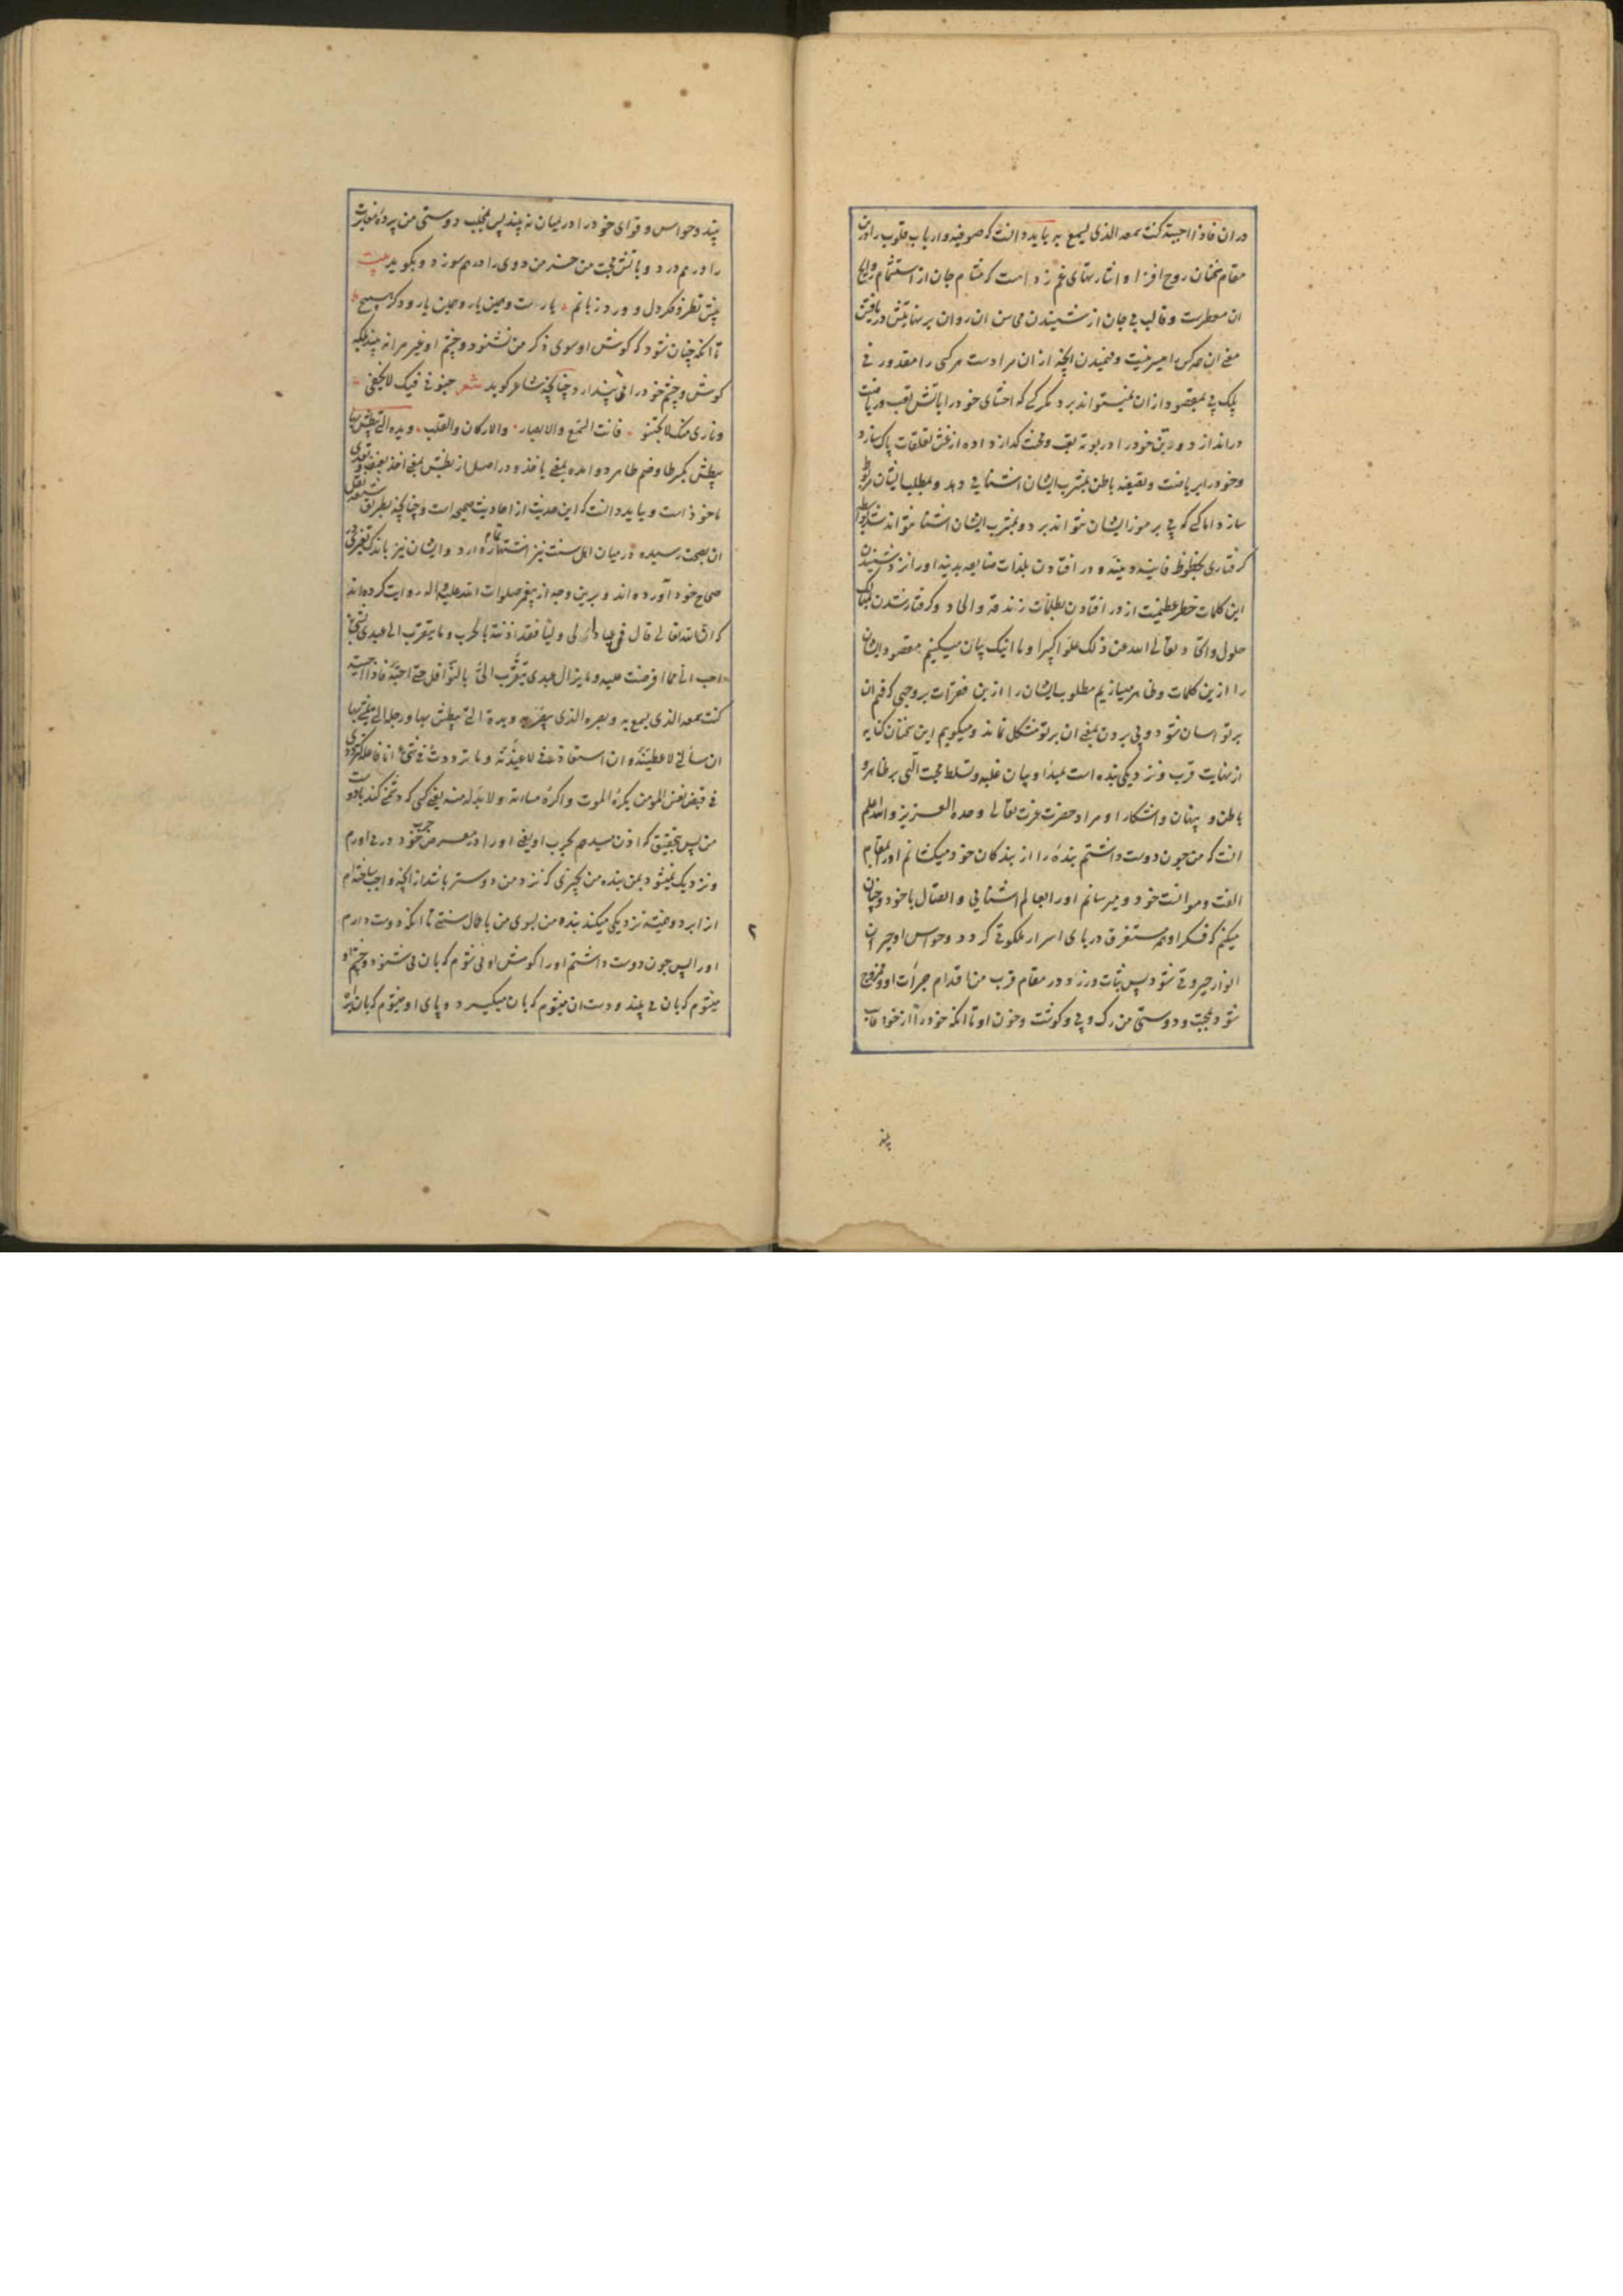 دران فاذا احببته کنت سمعه الذی یسمع به باید دانست که صوفیه و ارباب قلوب را درین
مقام سخنان روح افزا و اشارتهای غم زداست که مشام جان از استشمام روایح
ان معطرست و قالب بی جان از شنیدن محاسن ان روان بر نهایتش دریافتن
معنی ان هرکس را میسر نیست و فهمیدن انچه ازان مرادست هرکسی را مقدور نی
بلک پی بمقصود ازان نمیتواند برد مگر کسی که احشای خود را باتش تعب و ریاضت
دراندازد و بدن خود را در بوته تعب و محنت گداز داده از غش تعلقات پاک سازد
و خود را بریاضت و تصفیه باطن بمشرب ایشان اشنایی دهد و بمطلب ایشان مربوط
سازد اما کسی که پی بر موز ایشان نتواند برد و بمشرب ایشان اشنا نتواند شد بواسطه
گرفتاری بحظوظ فانیه دنیه و در افتادن بلذات بدنیه او را نزد شنیدن
این کلمات خطر عظیمست از در افتادن بظلمات زندقه و الحاد و گرفتار شدن بمهالک
حلول و اتحاد تعالی الله عن ذلک علوا کبیرا و ما اینک بیان میکنیم مقصود ایشان
را ازین کلمات و ظاهر میسازیم مطلوب ایشان را ازین فقرات بر وجهی که فهم ان
بر تو اسان شود و پی بردن بمعنی ان بر تو مشکل نماند و میگویم این سخنان کنایه
از نهایت قرب و نزدیکی بنده است بمبدا و بیان غلبه و تسلط محبت الهی بر ظاهر و
باطن و پنهان و اشکارا و مراد حضرت عزت تعالی وحده العزیز والله اعلم
انست که من چون دوست داشتم بنده را از بندکان خود میکشانم او را بمقام
الفت و موانست خود و میرسانم او را بعالم اشنایی و اتصال با خود و چنان
میکنم که فکر او همه مستغرق دریای اسرار ملکوتی گردد و حواس او حیران
انوار جبروتی شود پس ثبات ورزد در مقام قرب من اقدام جرأت او و ممزوج
شود بمحبت و دوستی من رک و پی و گوشت و خون او تا انکه خود را از خود غایب
بیند
بیند و حواس و قوای خود را درمیان نه بیند پس بمخلب دوستی من پرده مغایرت
را درهم درد و باتش محبت من خرمن دوی را درهم سوزد و بگوید بیت
پیش نظر و فکر دل و ورد زبانم یارست و همین یار و همین یار و دگر هیچ
تا انکه چنان شود که گوش او سوی ذکر من نشنود و چشم او غیر مرا نه بیند بلکه
گوش و چشم خود را مرا پندارد چنانچه شاعر گوید شعر جنونی فیک لا یخفی
و ناری منک لا تخبو فانت السمع والابصار والارکان والقلب و یده التی یبطش بها
یبطش بکسر طا و ضم طا هر دو امده بمعنی یاخذ و در اصل از بطش بمعنی اخذ بعنف و تعدی
ماخوذ است و باید دانست که این حدیث از احادیث صحیحه است و چنانچه بطریق شیعه نقل
ان بصحت رسیده درمیان اهل سنت نیز اشتهار تمام دارد و ایشان نیز باندک تغییری در
صحاح خود آورده اند و برین وجه از پیغمبر صلوات الله علیه و اله روایت کرده اند
که ان الله تعالی قال من عادی لی ولیا فقد اذنته بالحرب و ما یتقرب الی عبدی بشئ
احب الی مما افرضت علیه و ما یزال عبدی یتقرب الی بالنوافل حتی احبه فاذا احببته
کنت سمعه الذی یسمع به و بصره الذی یبصر به و یده التی یبطش بها و رجله التی یمشی بها
ان سألنی لاعطینه و ان استعاذنی لاعیذنه و ما ترددت فی شئ انا فاعله کترددی
فی قبض نفس المومن یکره الموت و اکره مساءته و لا بد له منه یعنی کسی که دشمنی کند با دوست
من پس بتحقیق که اذن میدهم بحرب او یعنی او را در معرض حرب خود در می اورم
و نزدیک نمیشود بمن بنده من بچیزی که نزد من دوستر باشد از انچه واجب ساخته ام
از ابرو و همیشه نزدیکی میکند بنده من بسوی من باعمال سنتی تا انکه دوست دارم
او را پس چون دوست داشتم او را گوش او می شوم که بان می شنود و چشم او
میشوم که بان می بیند و دست ان میشوم که بان میگیرد و پای او میشوم که بان راه
۲